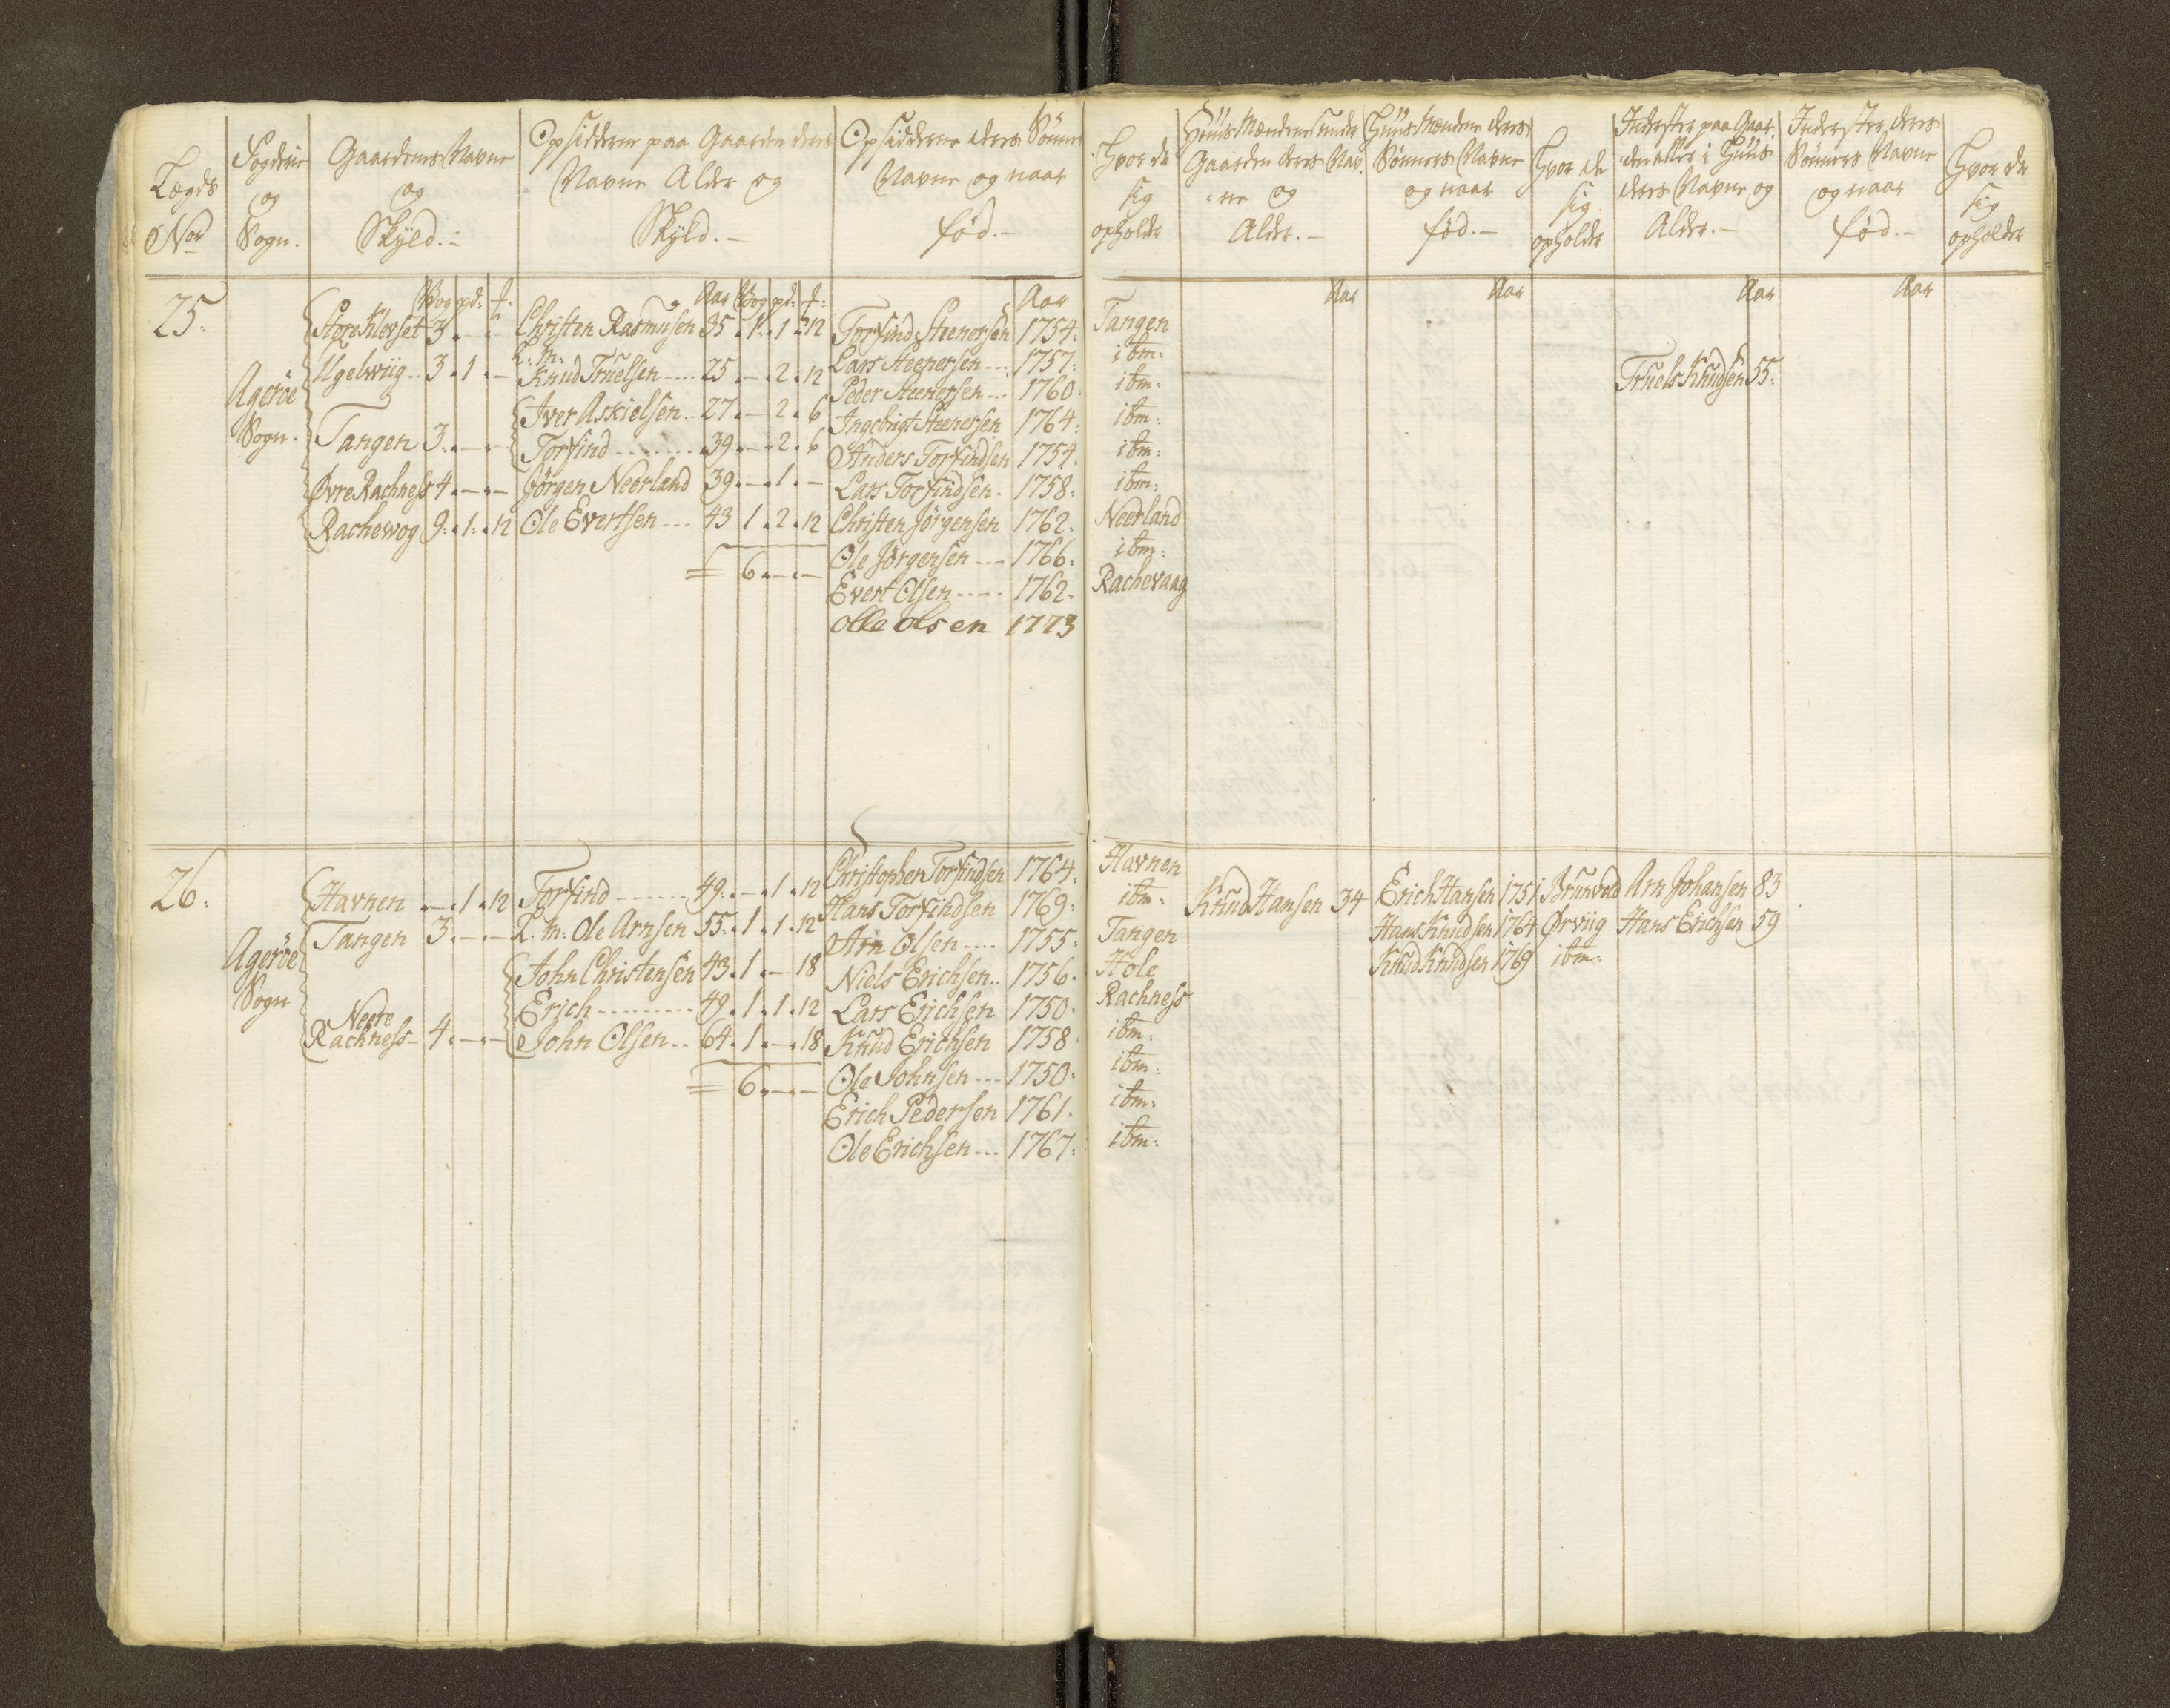 Lægds No
Fogderie og Sogn.
Gaardenes Navne og Skyld.
Opsiddere paa Gaarden deres Navne Alder og Skyld.
Opsidderne deres Sønners Navne og naar fød.
Hvor de sig opholder
Huus Mændene under Gaarden deres Navne og Alder.
Huus Mændene deres Sønners Navne og naar fød.
Hvor de sig opholder
Inderster paa Gaarden eller i Huus deres Navne og Alder.
Inderster deres Sønners Navne og naar fød.
Hvor de sig opholder
Wog pd: Aar Wog pd: Aar Aar Aar Aar Aar
25. Store Klevset 3. - - Christen Rasmusen 35. 1. 1. 12 Torfind Steenersen 1754. Tangen
Ugelwiig 3. 1. - L. m. Knud Truelsen 25. - 2. 12 Lars Steenersen 1757. ibm: Truels Knudsen 55.
Agerøe Sogn. Peder Steenersen 1760. ibm:
Tangen 3. - - Iver Askielsen 27. - 2. 6 Ingebrigt Steenersen 1764. ibm:
Torfind 39. - 2. 6 Anders Torfindsen 1754. ibm:
Øvre Rachness 4. - - Jørgen Neerland 39. - 1. - Lars Torfindsen 1758. ibm:
Rachewog 9. 1. 12 Ole Evertsen 43 1. 2. 12 Christen Jørgensen 1762. Neerland
= 6. - - Ole Jørgensen 1766. ibm:
Evert Olsen 1762. Rachevaag
Olle olsen 1773
26. Christopher Torfindsen 1764. Havnen
Havnen -. 1. 12 Torfind 49. -. 1. 12 Hans Torfindsen 1769: ibm: Knud Hansen 34 Erich Hansen 1751 Brunvold Arn Johansen 83
Tangen 3. - - L. m: Ole Arnsen 55. 1. 1. 12 Arn Olsen 1755: Tangen Hans Knudsen 1764 Ørviig Hans Erichsen 59
Agerøe Sogn John Christensen 43. 1. - 18 Niels Erichsen 1756. Hole Knud Knudsen 1769 ibm:
Erich 49. 1. 1. 12 Lars Erichsen 1750. Rachness
Nedre Rachness 4. - - John Olsen 64. 1. -. 18 Knud Erichsen 1758 ibm:
= 6. - - Ole Johnsen 1750: ibm:
Erich Pedersen 1761. ibm:
Ole Erichsen 1767: ibm: